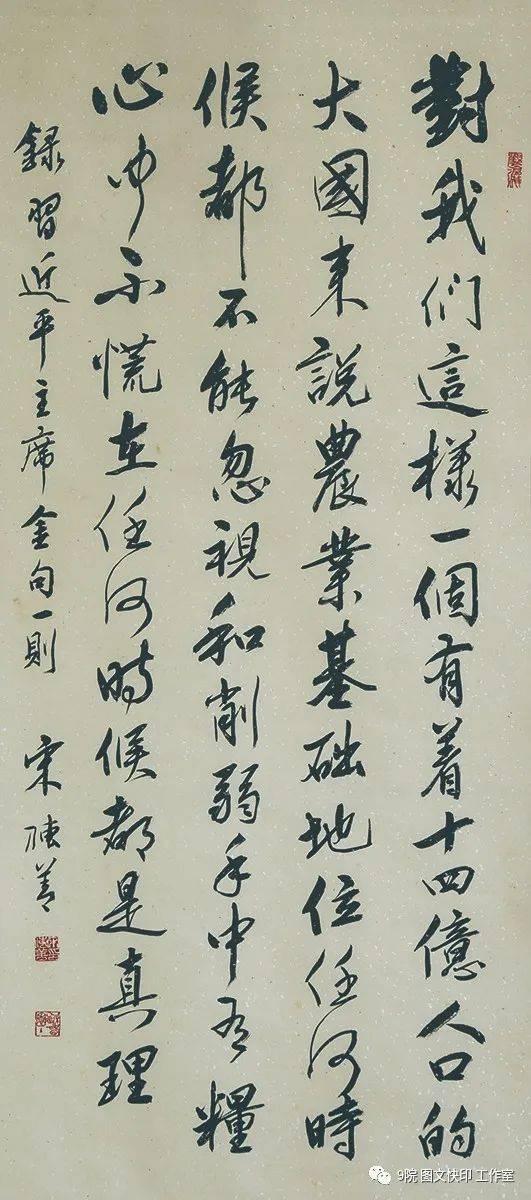 對我們這樣一個有着十四億人口的
大國来説農業基础地位任何時
候都不能忽視和削弱手中有糧
心中不慌在任何時候都是真理
錄習近平主席金句一則
宋陳善
9院 图文快印 工作室